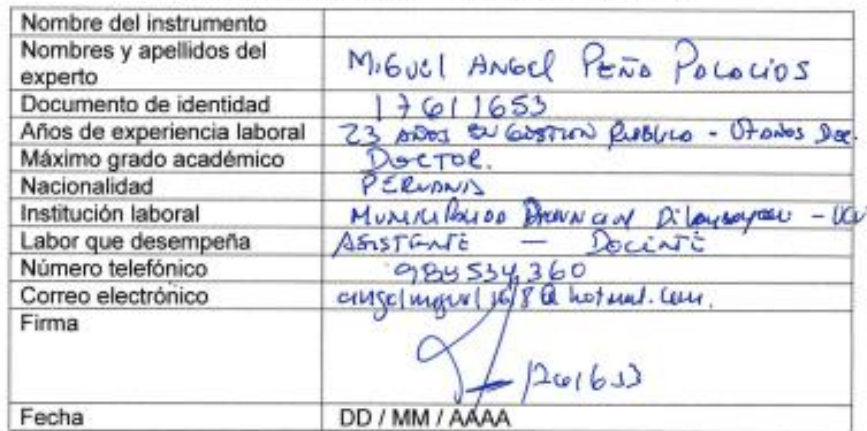 Nombre del instrumento
Nombres y apellidos del experto MIGUEL ANGEL PEÑA PALACIOS
Documento de identidad 17611653
Años de experiencia laboral 23 AÑOS EN GESTION PUBLICA - 07 años Doc.
Máximo grado académico DOCTOR.
Nacionalidad PERUANA
Institución laboral MUNICIPALIDAD PROVINCIAL - UCV
Labor que desempeña ASISTENTE — DOCENTE
Número telefónico
Correo electrónico @hotmail.com.
Firma
Fecha DD / MM / AAAA